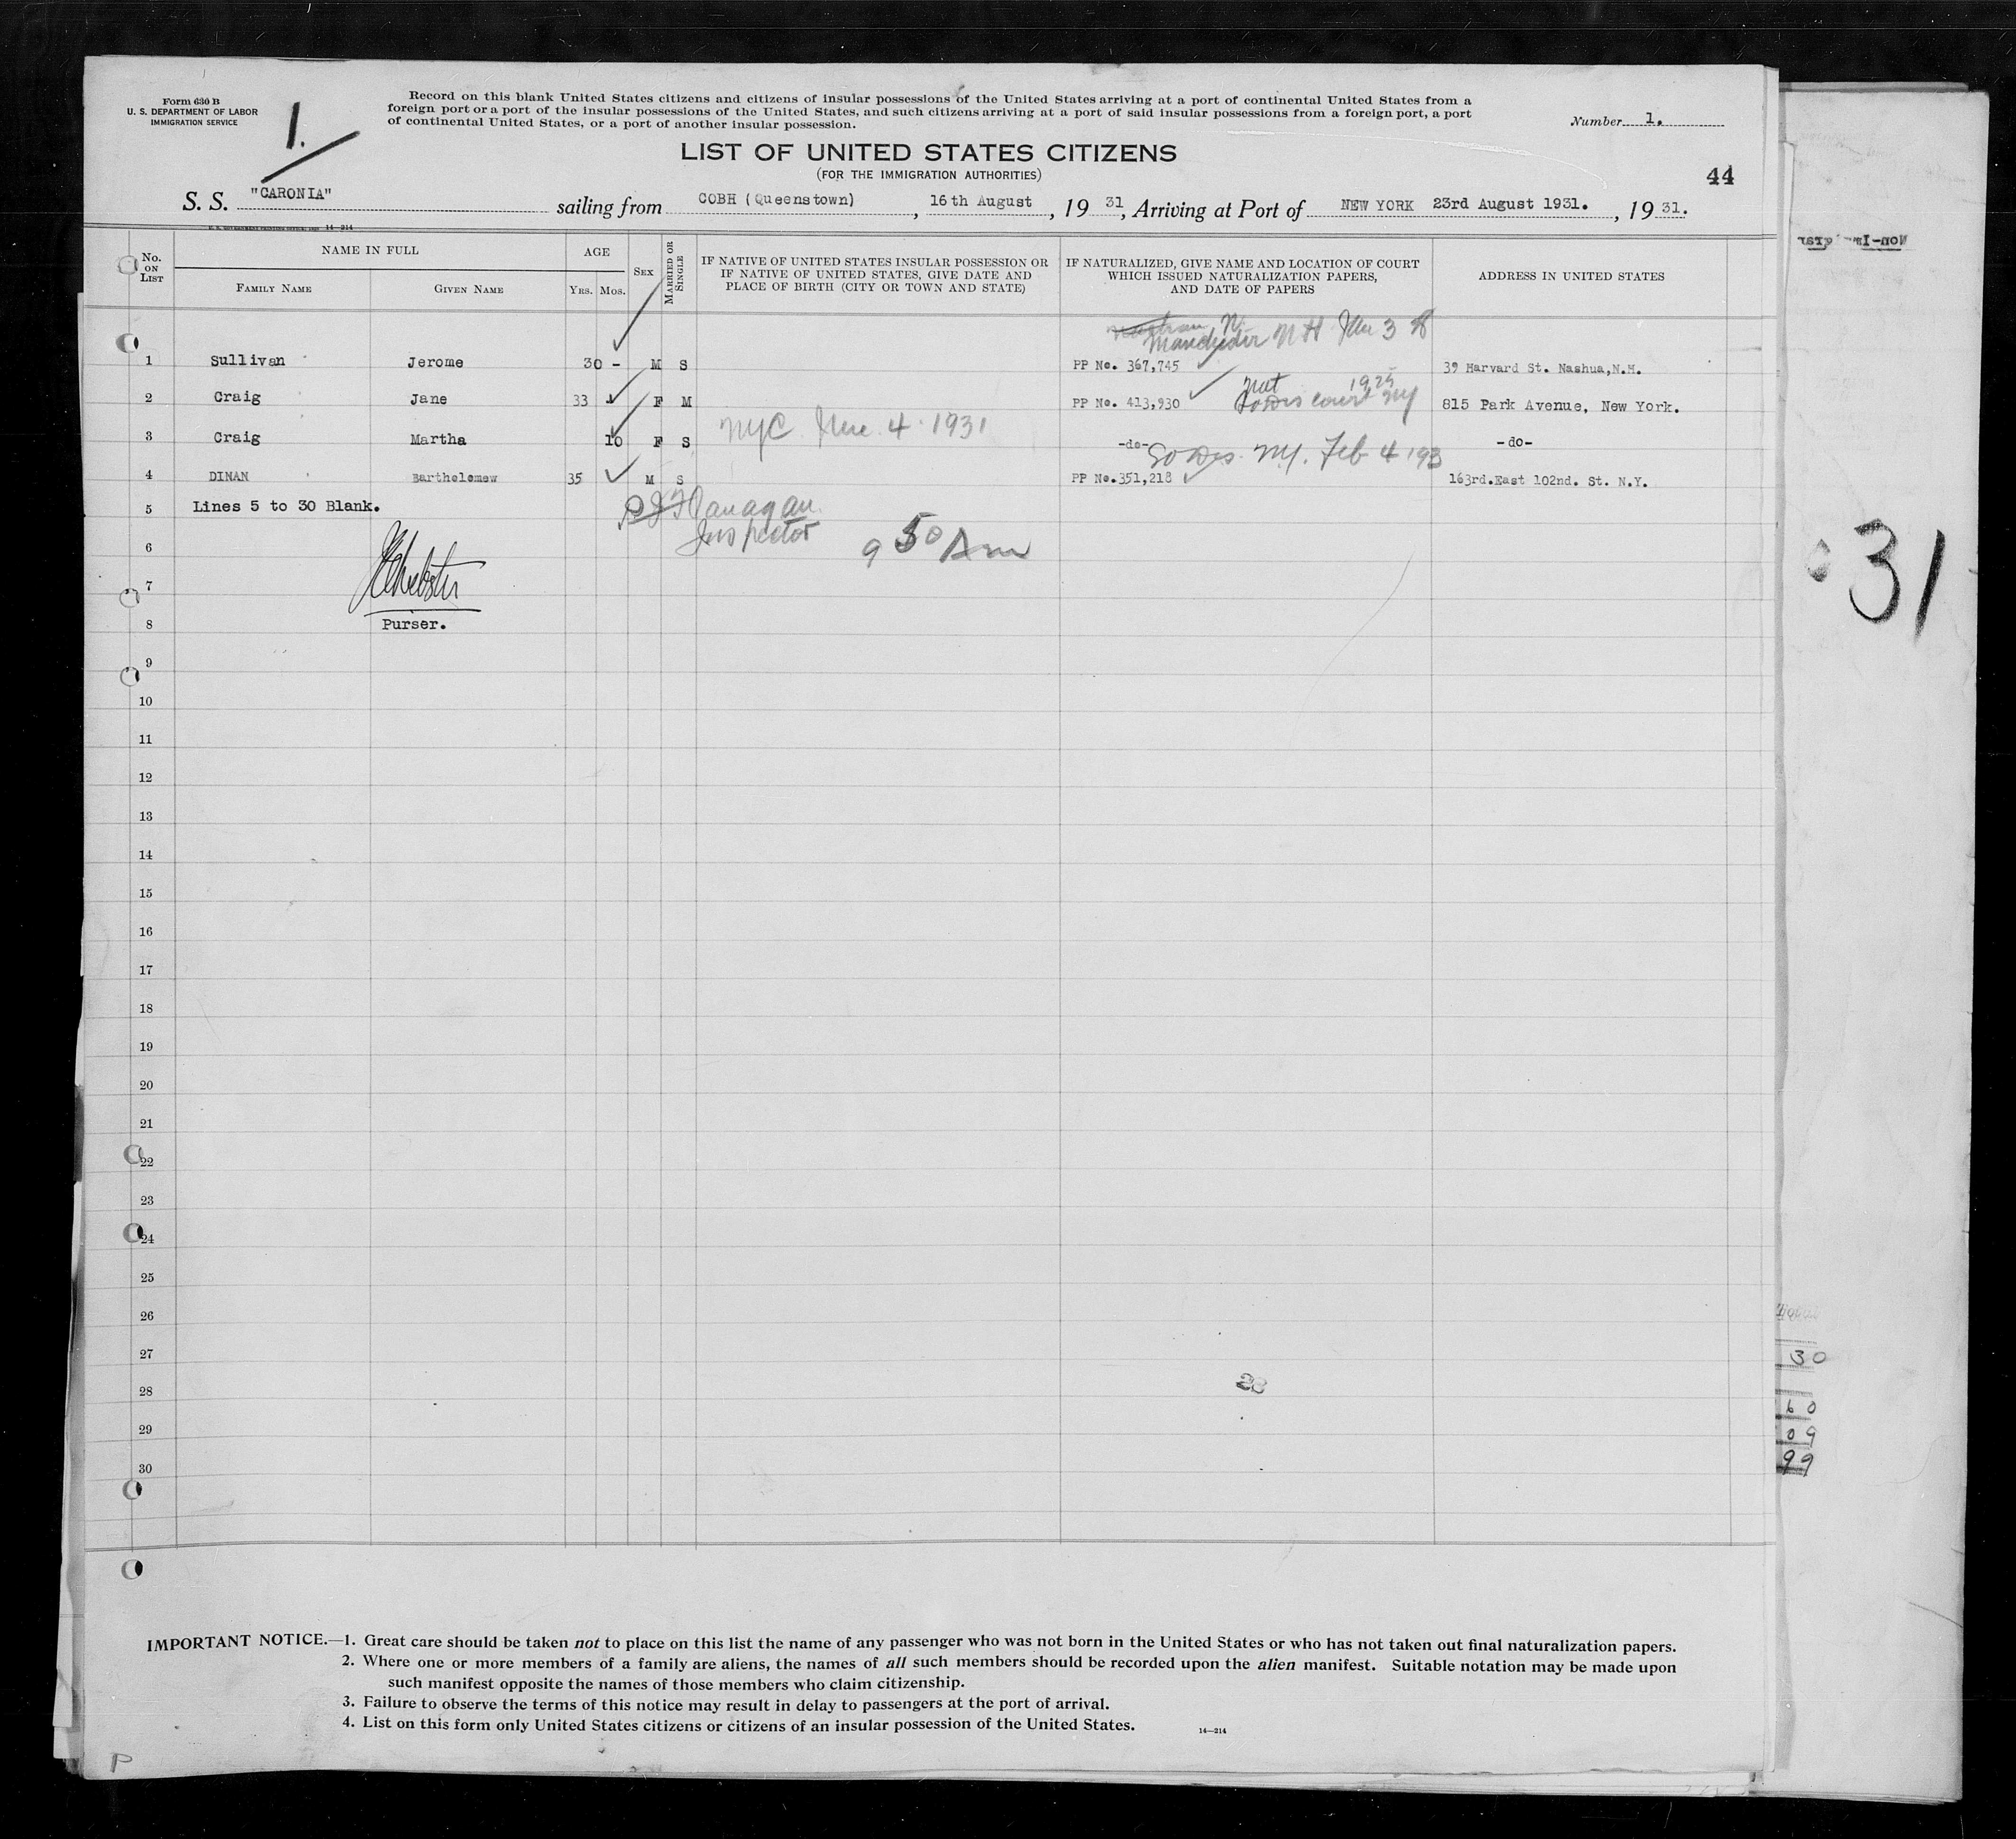 Form 630 B
U. S. DEPARTMENT OF LABOR
IMMIGRATION SERVICE
1.
Record on this blank United States citizens and citizens of insular possessions of the United States arriving at a port of continental United States from a
foreign port or a port of the insular possessions of the United States, and such citizens arriving at a port of said insular possessions from a foreign port, a port
of continental United States, or a port of another insular possession.
Number 1.
LIST OF UNITED STATES CITIZENS
(FOR THE IMMIGRATION AUTHORITIES)
44
S. S. "CARONIA" sailing from COBH (Queenstown), 16th August, 19 31, Arriving at Port of NEW YORK 23rd August 1931., 19 31.
14—214
No. ON LIST
NAME IN FULL
FAMILY NAME
GIVEN NAME
AGE
YRS. MOS.
SEX
MARRIED OR SINGLE
IF NATIVE OF UNITED STATES INSULAR POSSESSION OR
IF NATIVE OF UNITED STATES, GIVE DATE AND
PLACE OF BIRTH (CITY OR TOWN AND STATE)
IF NATURALIZED, GIVE NAME AND LOCATION OF COURT
WHICH ISSUED NATURALIZATION PAPERS,
AND DATE OF PAPERS
ADDRESS IN UNITED STATES
Manchester N H 3
1 Sullivan Jerome 30 - M S PP No. 367,745 39 Harvard St. Nashua,N.H.
Nat 1925
2 Craig Jane 33 F M PP No. 413,930 So Dis Court NY 815 Park Avenue, New York.
3 Craig Martha 10 F S NYC 4 1931 -do- -do-
So Dis. NY. Feb 4 193
4 DINAN Bartholomew 35 M S PP No.351,218 163rd.East 102nd. St. N.Y.
5 Lines 5 to 30 Blank.
Flanagan
Inspector
9 50 Am
6
Webster
7
Purser.
8
9
10
11
12
13
14
15
16
17
18
19
20
21
22
23
24
25
26
27
28
28
29
30
IMPORTANT NOTICE.—1. Great care should be taken not to place on this list the name of any passenger who was not born in the United States or who has not taken out final naturalization papers.
2. Where one or more members of a family are aliens, the names of all such members should be recorded upon the alien manifest. Suitable notation may be made upon
such manifest opposite the names of those members who claim citizenship.
3. Failure to observe the terms of this notice may result in delay to passengers at the port of arrival.
4. List on this form only United States citizens or citizens of an insular possession of the United States.
14—214
P
31
30
60
09
99